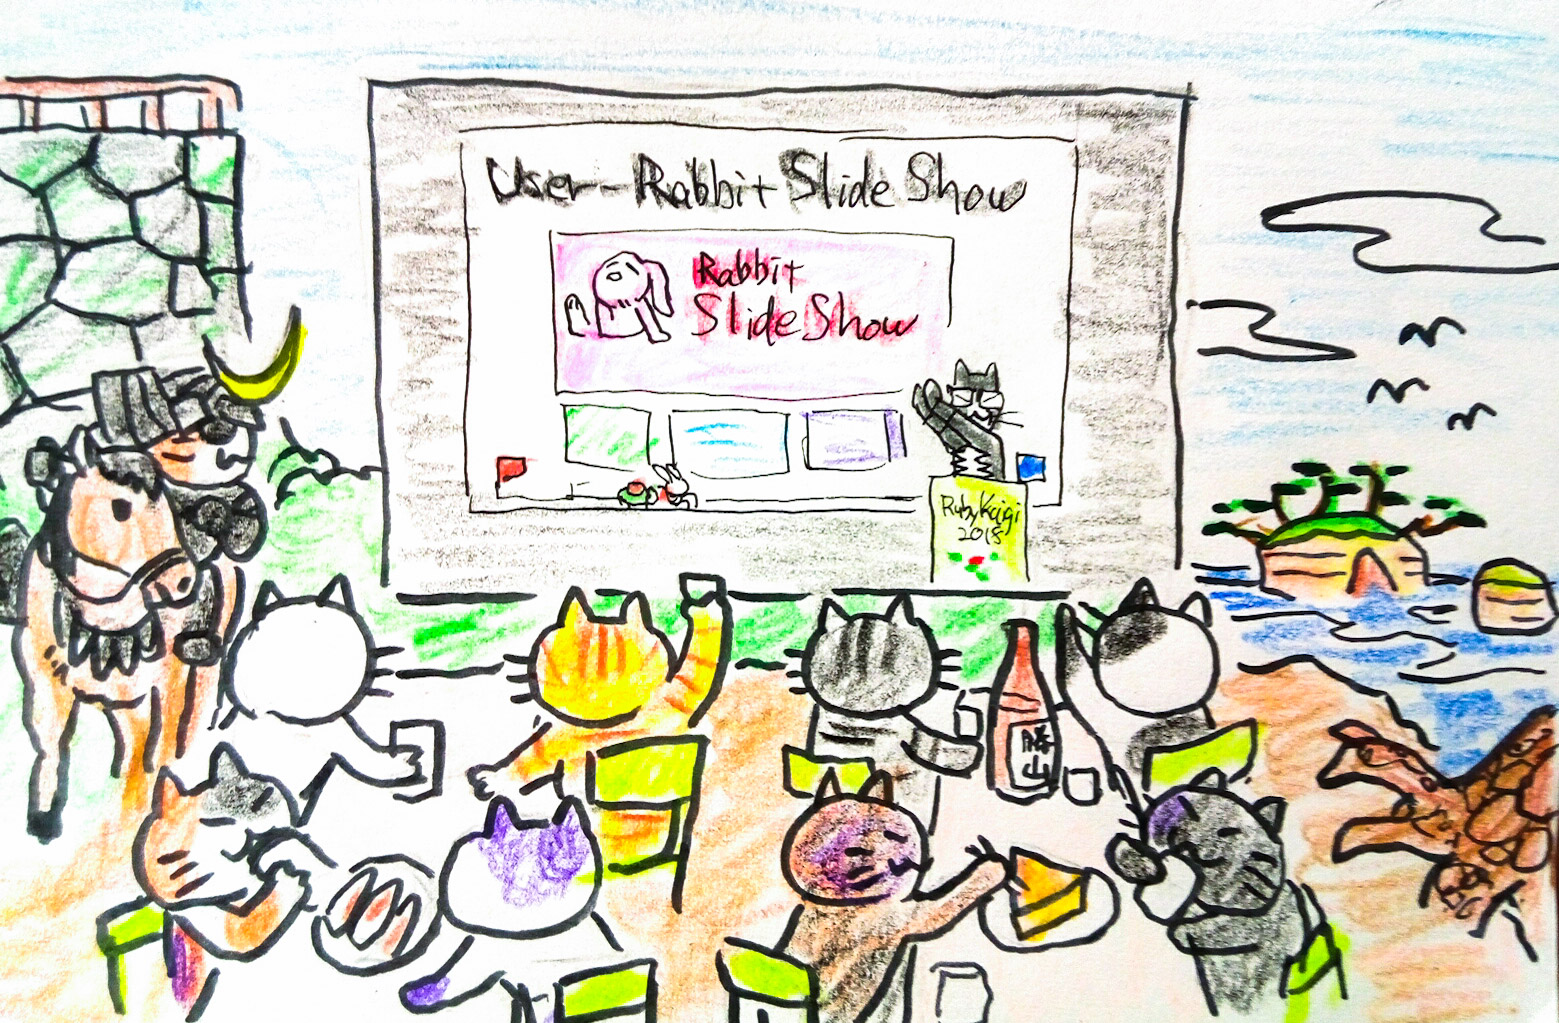 User-Rabbit Slide Show
Rabbit
Slide Show
RubyKaigi
2018
勝
山